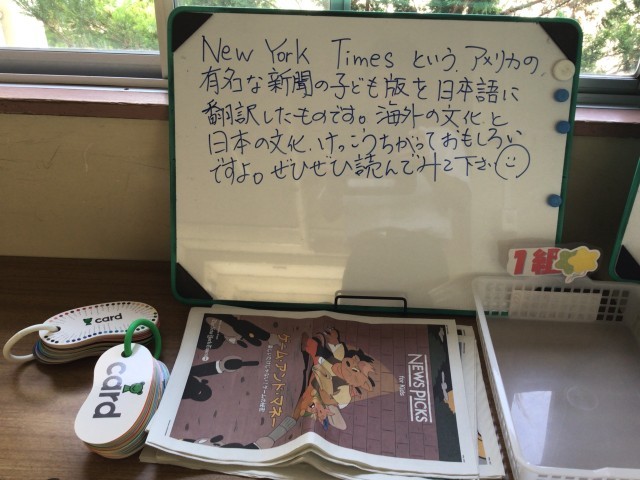 New York Times という、アメリカの
有名な新聞の子ども版を日本語に
翻訳したものです。海外の文化と
日本の文化、けっこうちがっておもしろい
ですよ。ぜひぜひ読んでみて下さい
1組
card
card
NEWSPICKS
for Kids
ゲーム・アンド・マネー